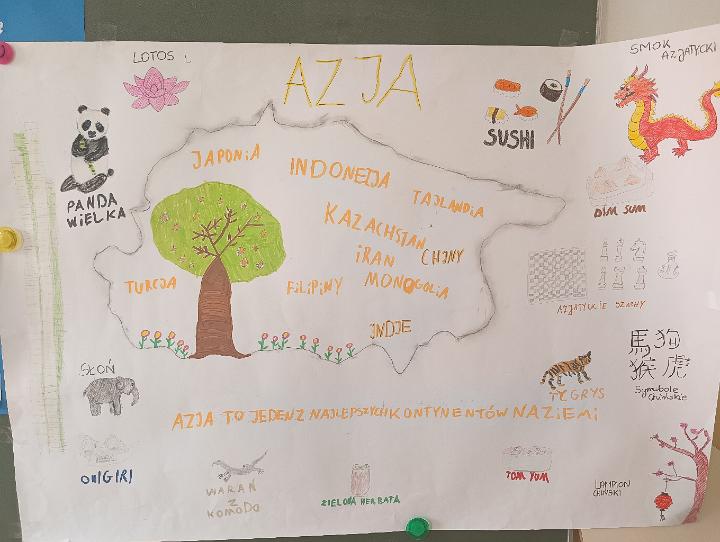 LOTOS
AZJA
SMOK
AZJATYCKI
SUSHI
PANDA
WIELKA
JAPONIA
INDONEZJA
TAJLANDIA
DIM SUM
KAZACHSTAN
IRAN
CHINY
TURCJA
FILIPINY
MONOGOLIA
AZJATYCKIE SZACHY
INDJE
馬狗
猴虎
Symbole
Chińskie
SŁOŃ
TYGRYS
AZJA TO JEDEN Z NAJLEPSZYCH KONTYNENTÓW NA ZIEMI
ONIGIRI
WARAN
Z
KOMODO
ZIELONA HERBATA
TOM YUM
LAMPION
CHIŃSKI